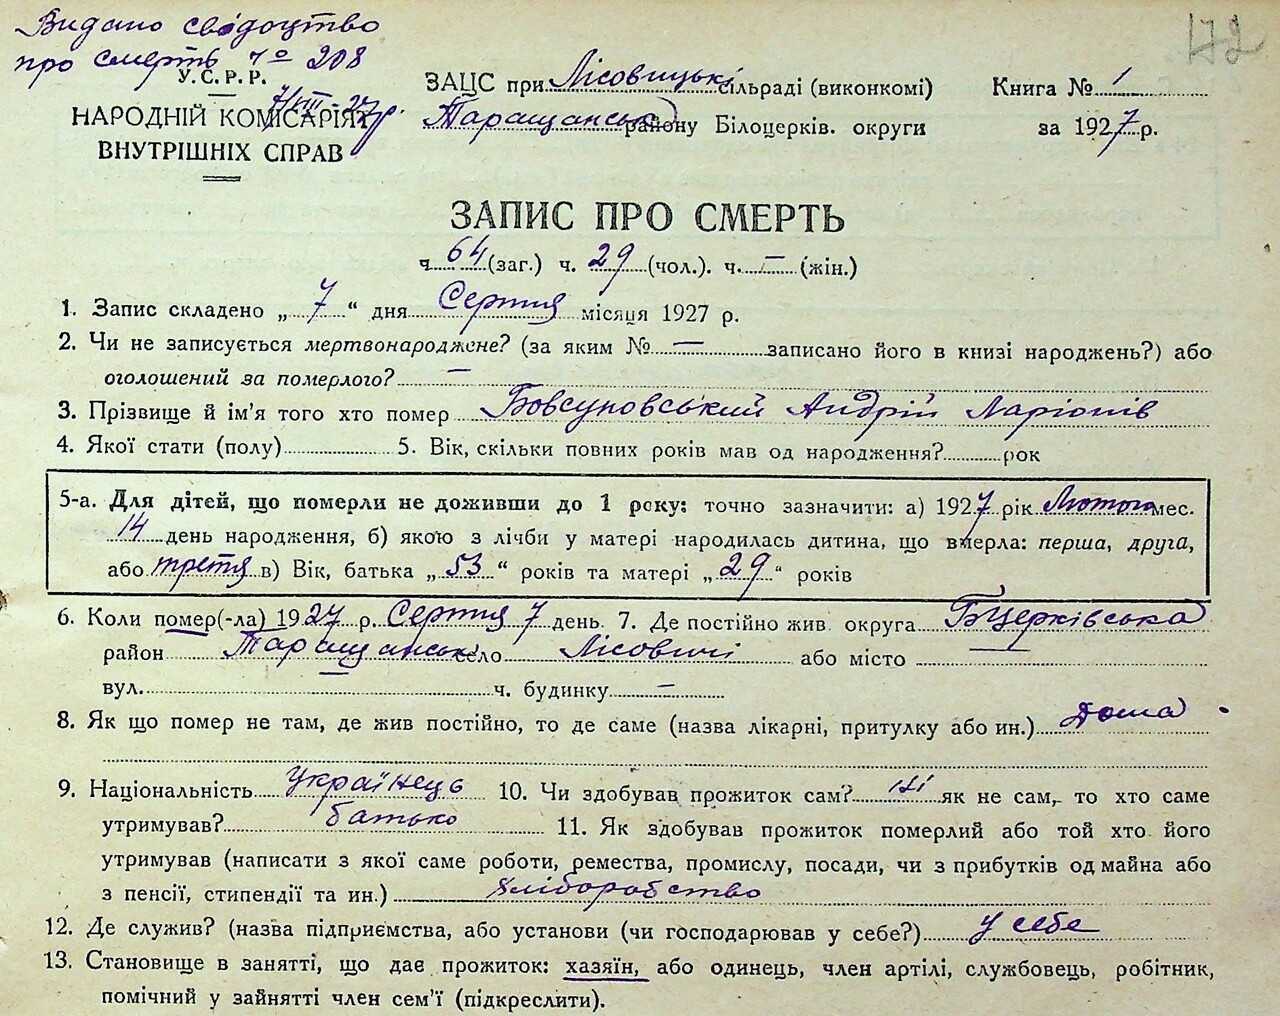 Видано свідоцтво
про смерть № 208
7/VIII-27р.
172
У.С.Р.Р.
НАРОДНІЙ КОМІСАРІЯТ
ВНУТРІШНІХ СПРАВ
ЗАЦС при Лісовицькі сільраді (виконкомі)
Таращанськ району Білоцерків. округи
Книга № 1
за 1927 р.
ЗАПИС ПРО СМЕРТЬ
ч. 64 (заг.) ч. 29 (чол.). ч. — (жін.)
1. Запис складено „ 7 “ дня Серпня місяця 1927 р.
2. Чи не записується мертвонароджене? (за яким № — записано його в книзі народжень?) або
оголошений за померлого? —
3. Прізвище й ім'я того хто помер Бовсуновський Андрій Ларіонів
4. Якої стати (полу) 5. Вік, скільки повних років мав од народження? рок
5-а. Для дітей, що померли не доживши до 1 року: точно зазначити: а) 1927 рік Лютого мес.
14 день народження, б) якою з лічби у матері народилась дитина, що вмерла: перша, друга,
або третя в) Вік, батька „ 53 “ років та матері „ 29 “ років
6. Коли помер(-ла) 1927 р. Серпня 7 день. 7. Де постійно жив округа БЦерківська
район Таращанськ село Лісовичі або місто —
вул. — ч. будинку —
8. Як що помер не там, де жив постійно, то де саме (назва лікарні, притулку або ин.) Дома
9. Національність Українець 10. Чи здобував прожиток сам? Ні як не сам, то хто саме
утримував? батько 11. Як здобував прожиток померлий або той хто його
утримував (написати з якої саме роботи, ремества, промислу, посади, чи з прибутків од майна або
з пенсії, стипендії та ин.) хліборобство
12. Де служив? (назва підприємства, або установи (чи господарював у себе?) у себе
13. Становище в занятті, що дає прожиток: хазяїн, або одинець, член артілі, службовець, робітник,
помічний у зайнятті член сем'ї (підкреслити).